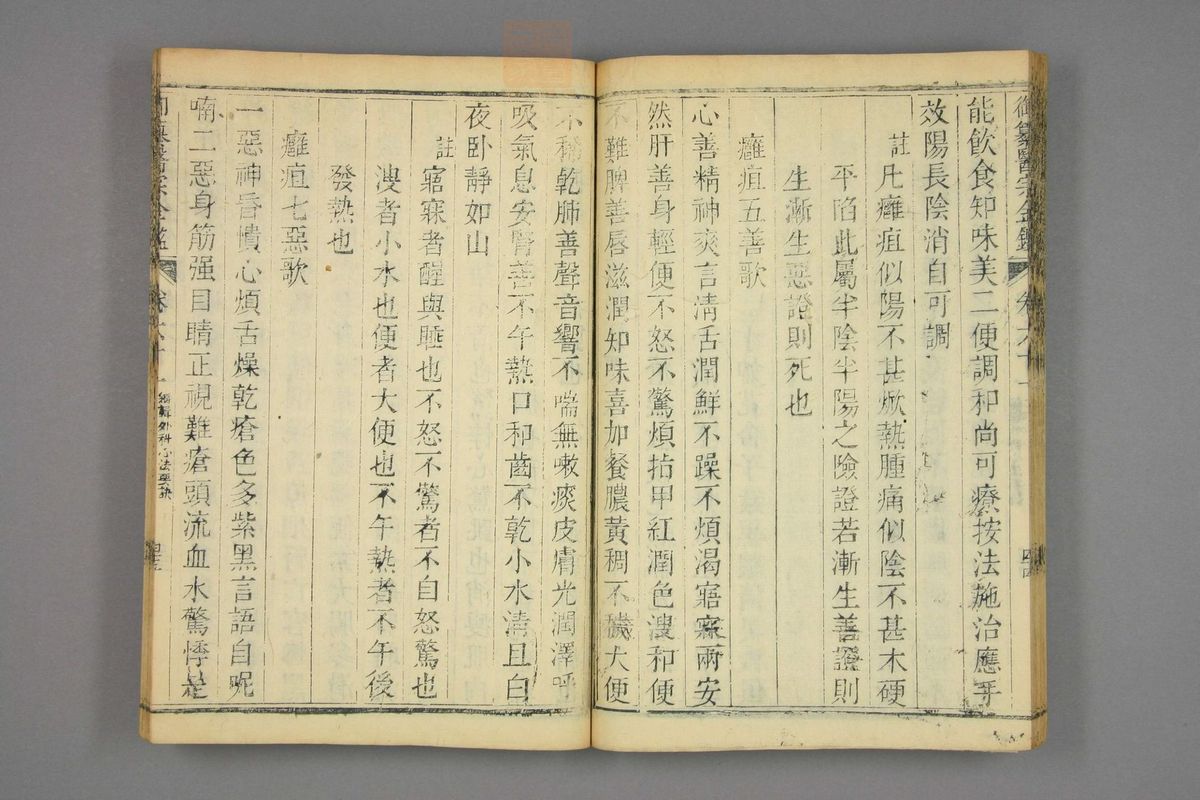 御纂醫宗金鑑 卷六十一
能飲食知味美二便調和尚可療按法施治應手
效陽長陰消自可調
註 凡癰疽似陽不甚焮熱腫痛似陰不甚木硬
平陷此屬半陰半陽之險證若漸生善證則
生漸生惡證則死也
癰疽五善歌
心善精神爽言清舌潤鮮不躁不煩渴寤寐兩安
然肝善身輕便不怒不驚煩指甲紅潤色溲和便
不難脾善唇滋潤知味喜加餐膿黃稠不穢大便
不稀乾肺善聲音響不喘無嗽痰皮膚光潤澤呼
吸氣息安腎善不午熱口和齒不乾小水清且白
夜卧靜如山
註 寤寐者醒與睡也不怒不驚者不自怒驚也
溲者小水也便者大便也不午熱者不午後
發熱也
癰疽七惡歌
一惡神昏憒心煩舌燥乾瘡色多紫黑言語自呢
喃二惡身筋强目睛正視難瘡頭流血水驚悸是
御纂醫宗金鑑 卷六十一 編輯外科心法要訣